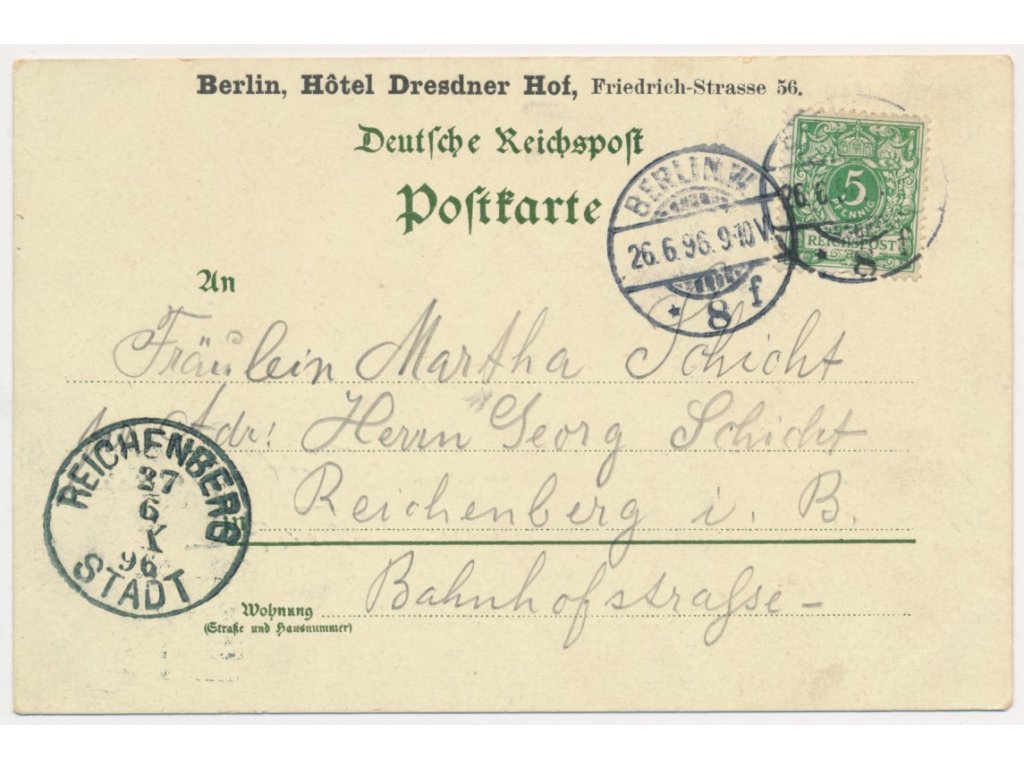 Berlin, Hôtel Dresdner Hof, Friedrich-Strasse 56.
Deutsche Reichspost
Postkarte
5
PFENNIG
REICHSPOST
26.6.
* 8
BERLIN.W.
26.6.96.9-10V.
* 8 f
An
Fräulein Martha Schicht
Adr: Herrn Georg Schicht
Reichenberg i. B.
Bahnhofstraße-
Wohnung
(Straße und Hausnummer)
REICHENBERG
27
6
96
STADT